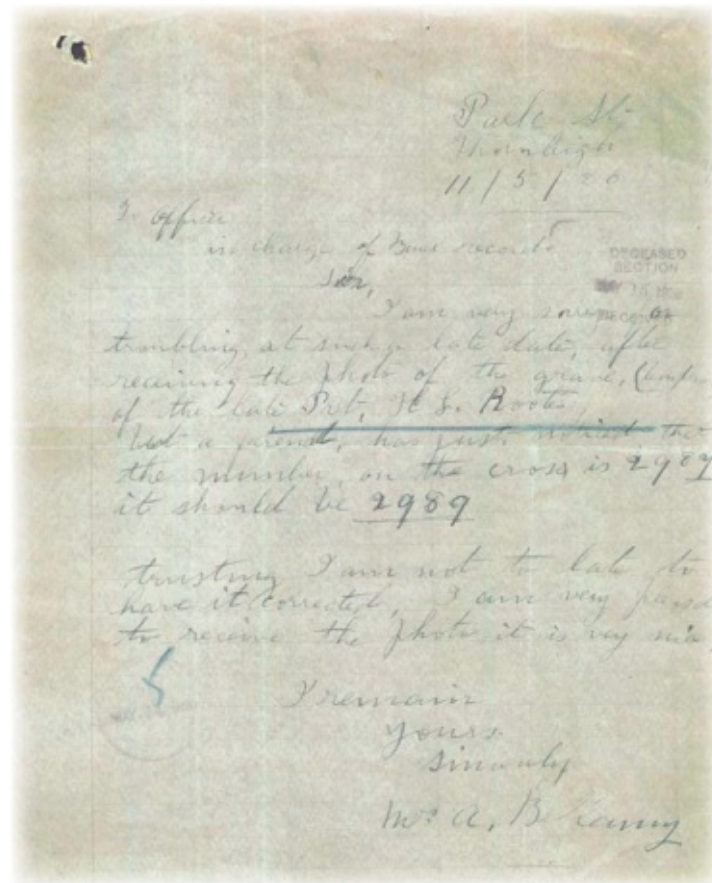 Park St
Thornleigh
11/5/20
To officer
in charge of Base records
Sir,
DECEASED
SECTION
I am very sorry
troubling at such a late date, after
receiving the photo of the grave,
of the late Pvt, H. S. Roots
but a friend, has just noticed the
the number on the cross is
it should be 2989
trusting I am not to late to
have it corrected, I am very
to receive the photo it is very
I remain
yours
sincerely
Mrs A,